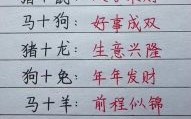 马十狗：好事成双
猪十龙：生意兴隆
狗十兔：年年发财
马十羊：前程似锦